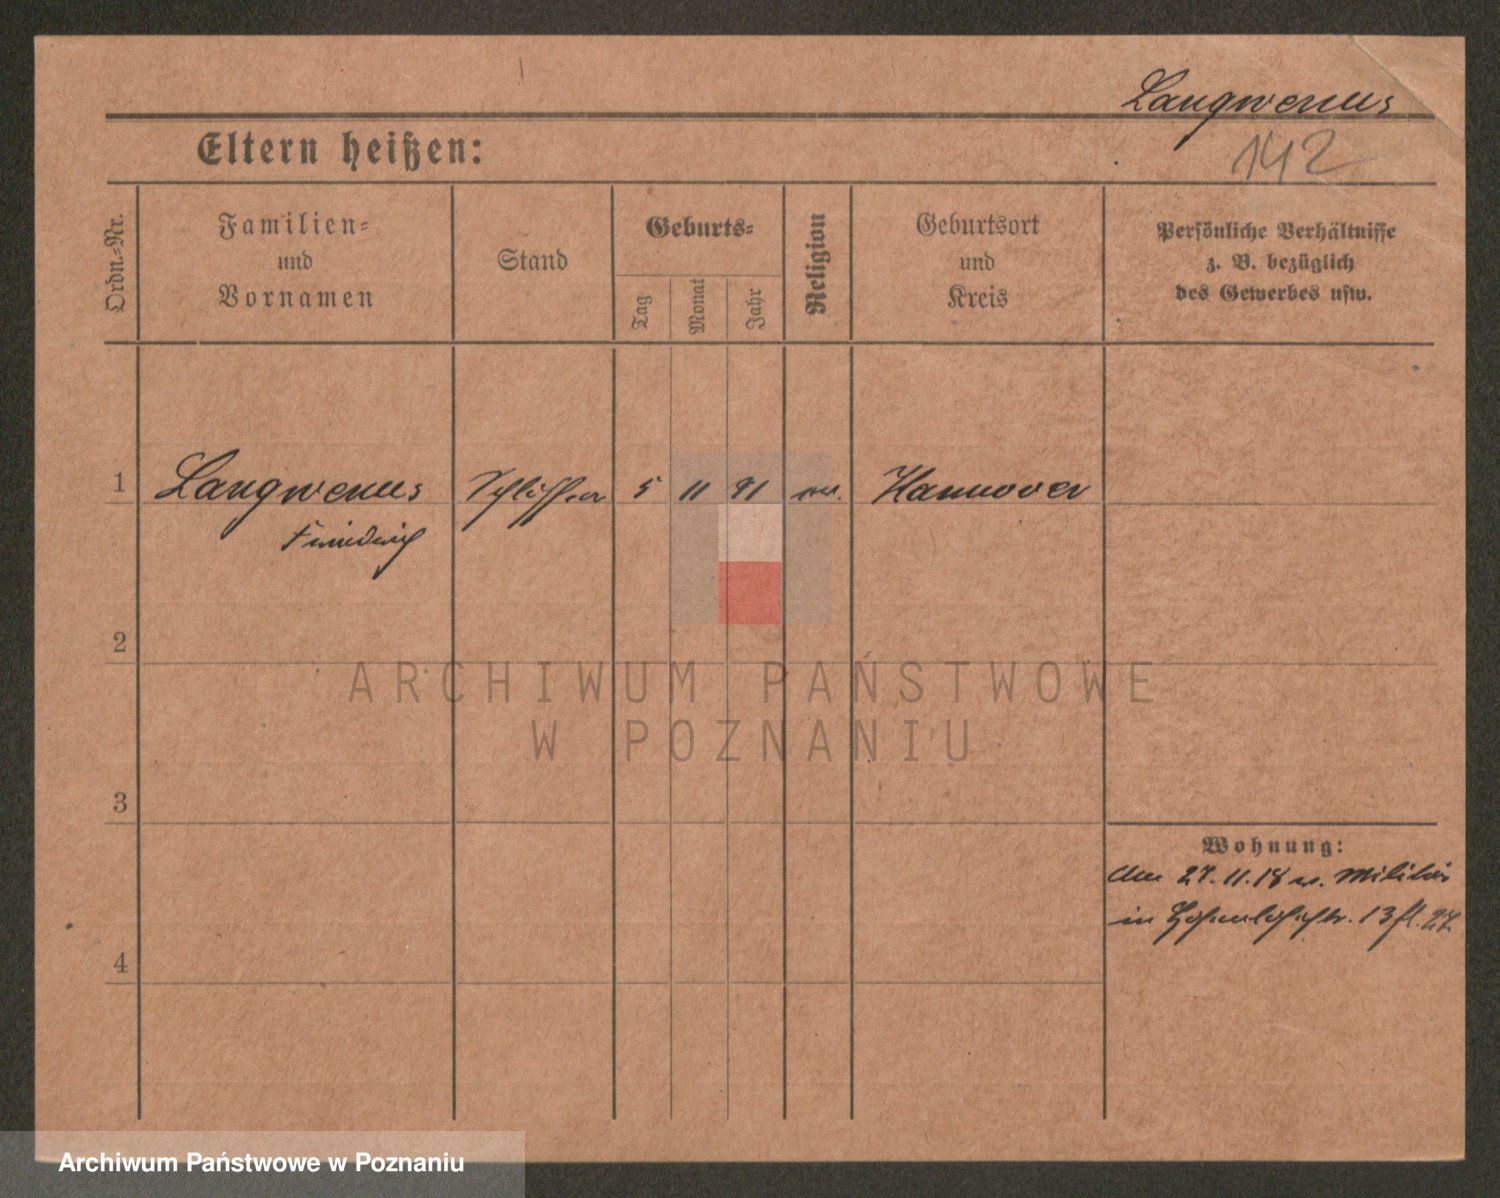 Langwenus
142
Eltern heißen:
Ordn.-Nr.
Familien-
und
Vornamen
Stand
Geburts-
Tag
Monat
Jahr
Religion
Geburtsort
und
Kreis
Persönliche Verhältnisse
z. B. bezüglich
des Gewerbes usw.
1
Langwenus
Friedrich
5 11 91
Hannover
2
ARCHIWUM PAŃSTWOWE
W POZNANIU
3
Wohnung:
27.11.18 v. Militär
in 13
4
Archiwum Państwowe w Poznaniu